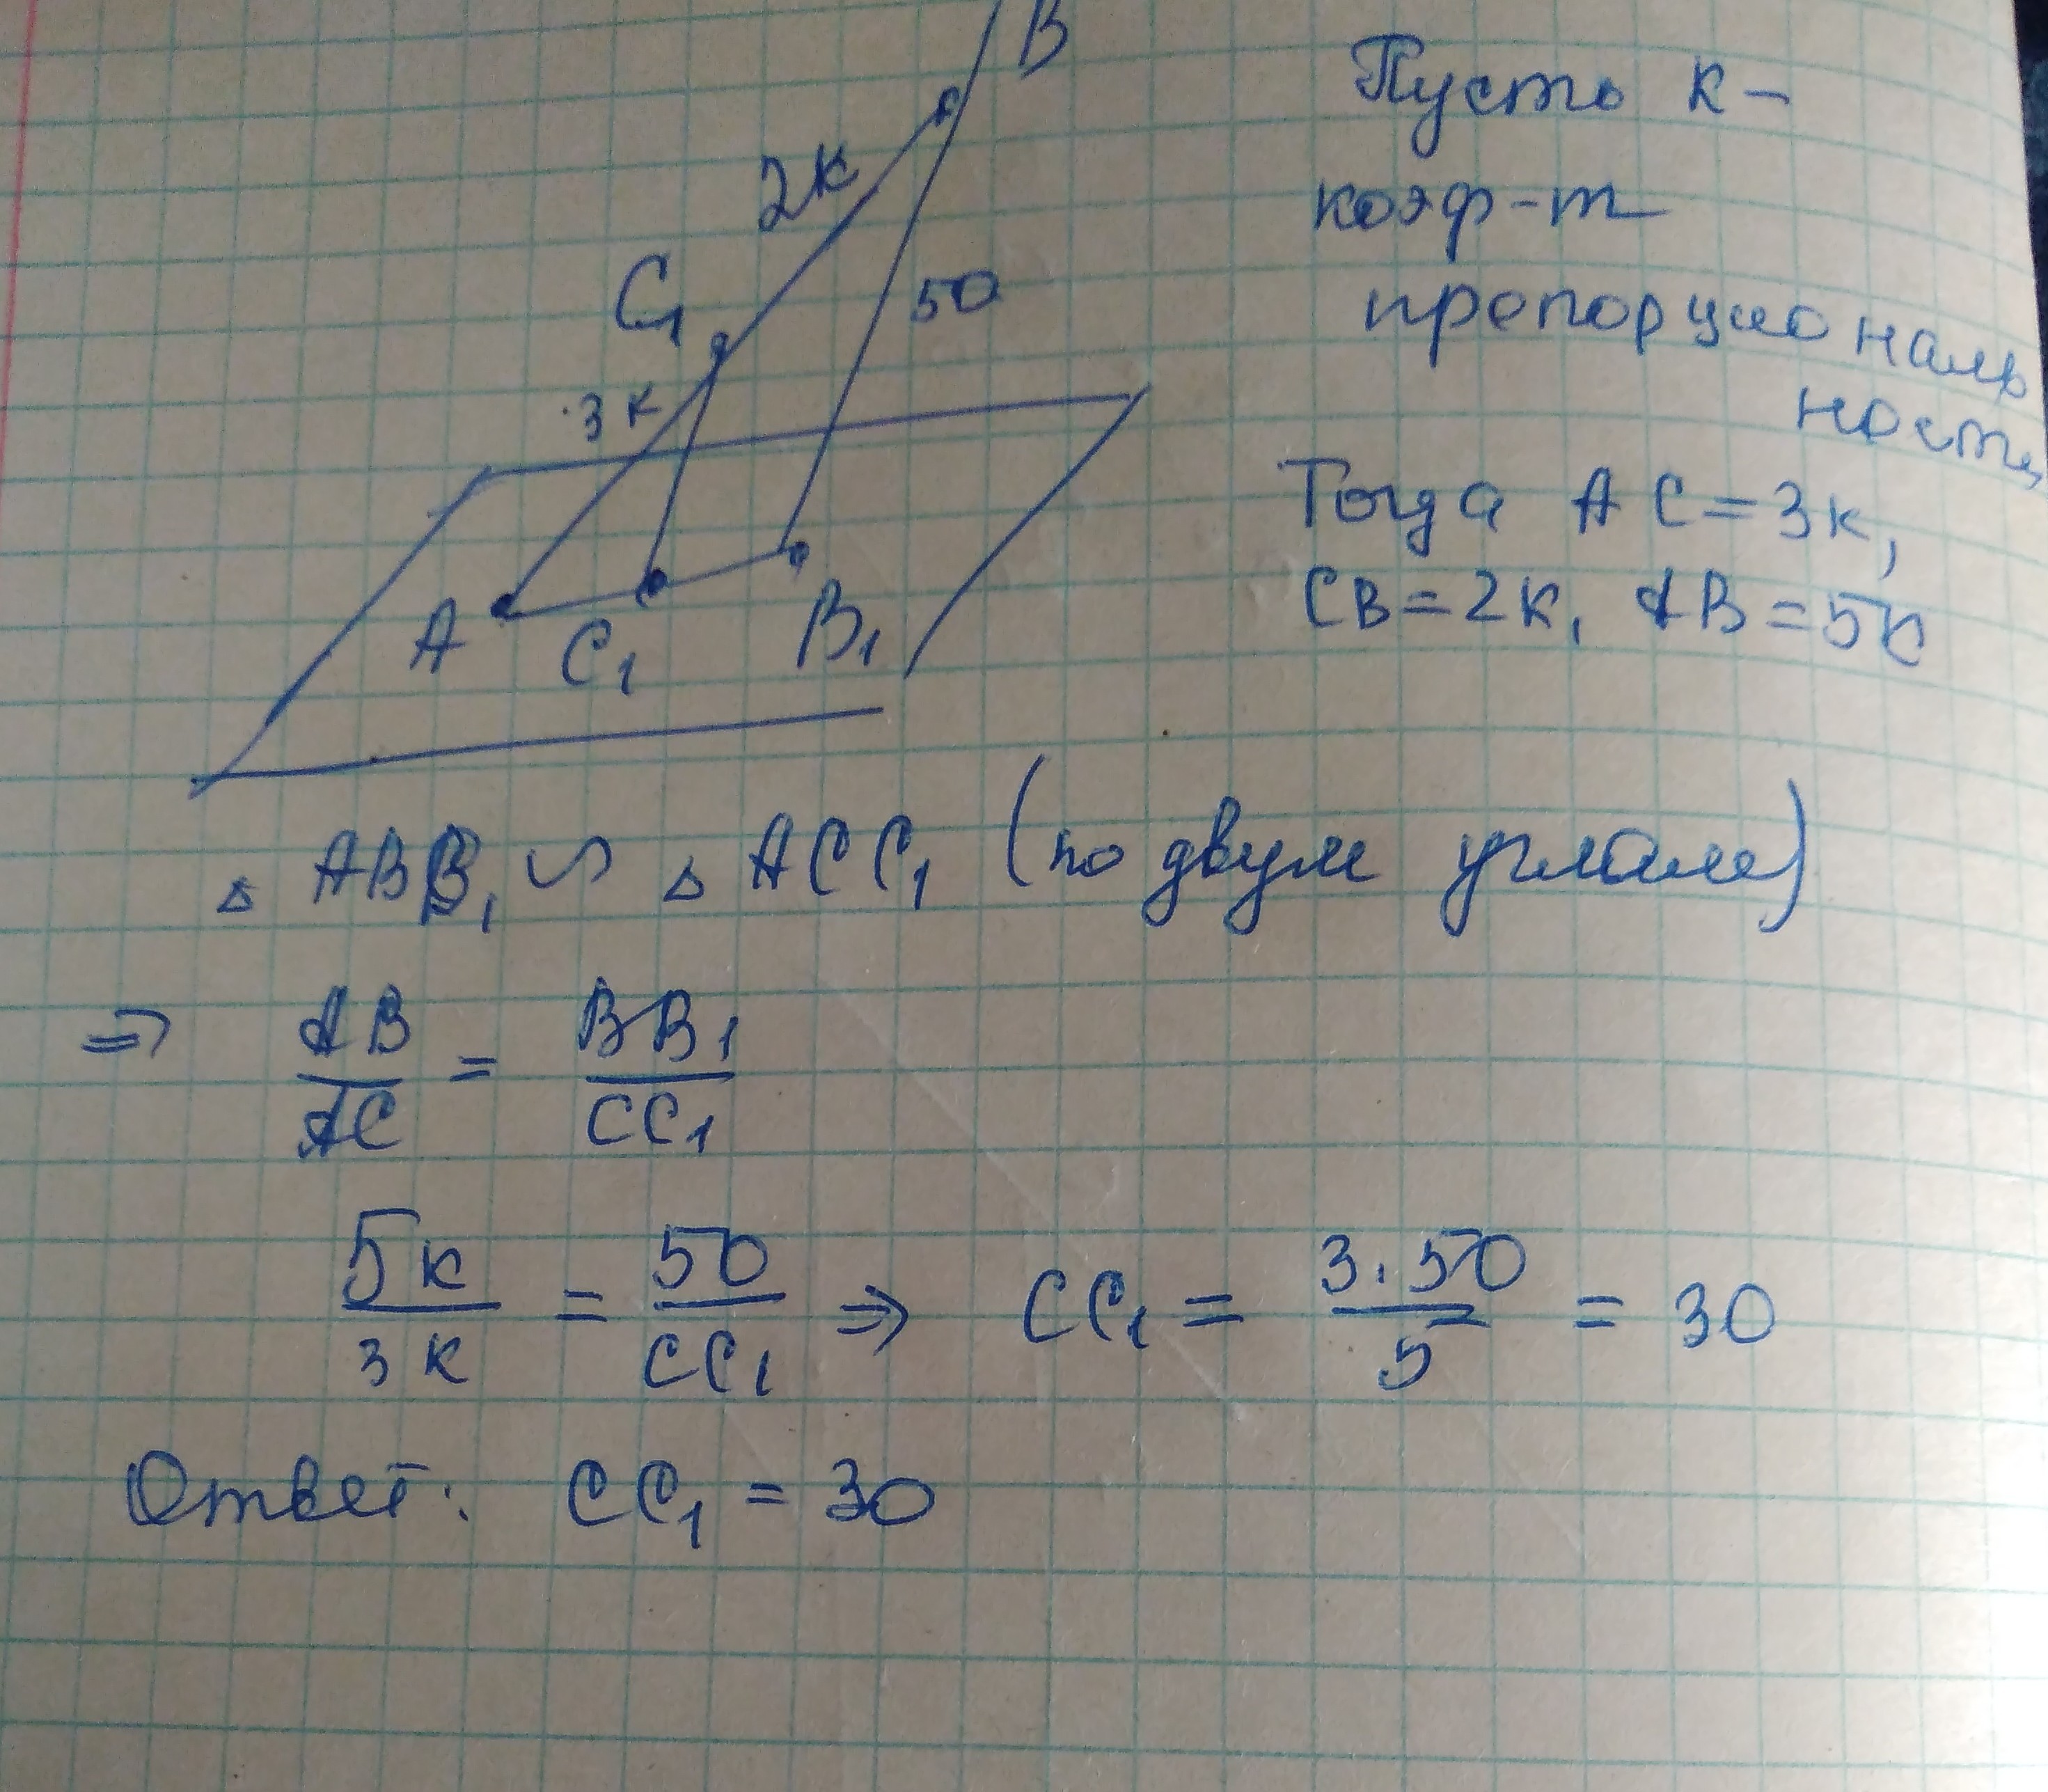 B
2к
C₁
50
3к
A
C₁
B₁
Пусть к-
коэф-т
пропорциональ
ности
Тогда AC = 3к,
CB = 2к, AB = 5к
△ ABB₁ ∽ △ ACC₁ (по двум углам)
⇒ AB/AC = BB₁/CC₁
5к/3к = 50/CC₁ ⇒ CC₁ = 3·50/5 = 30
Ответ: CC₁ = 30